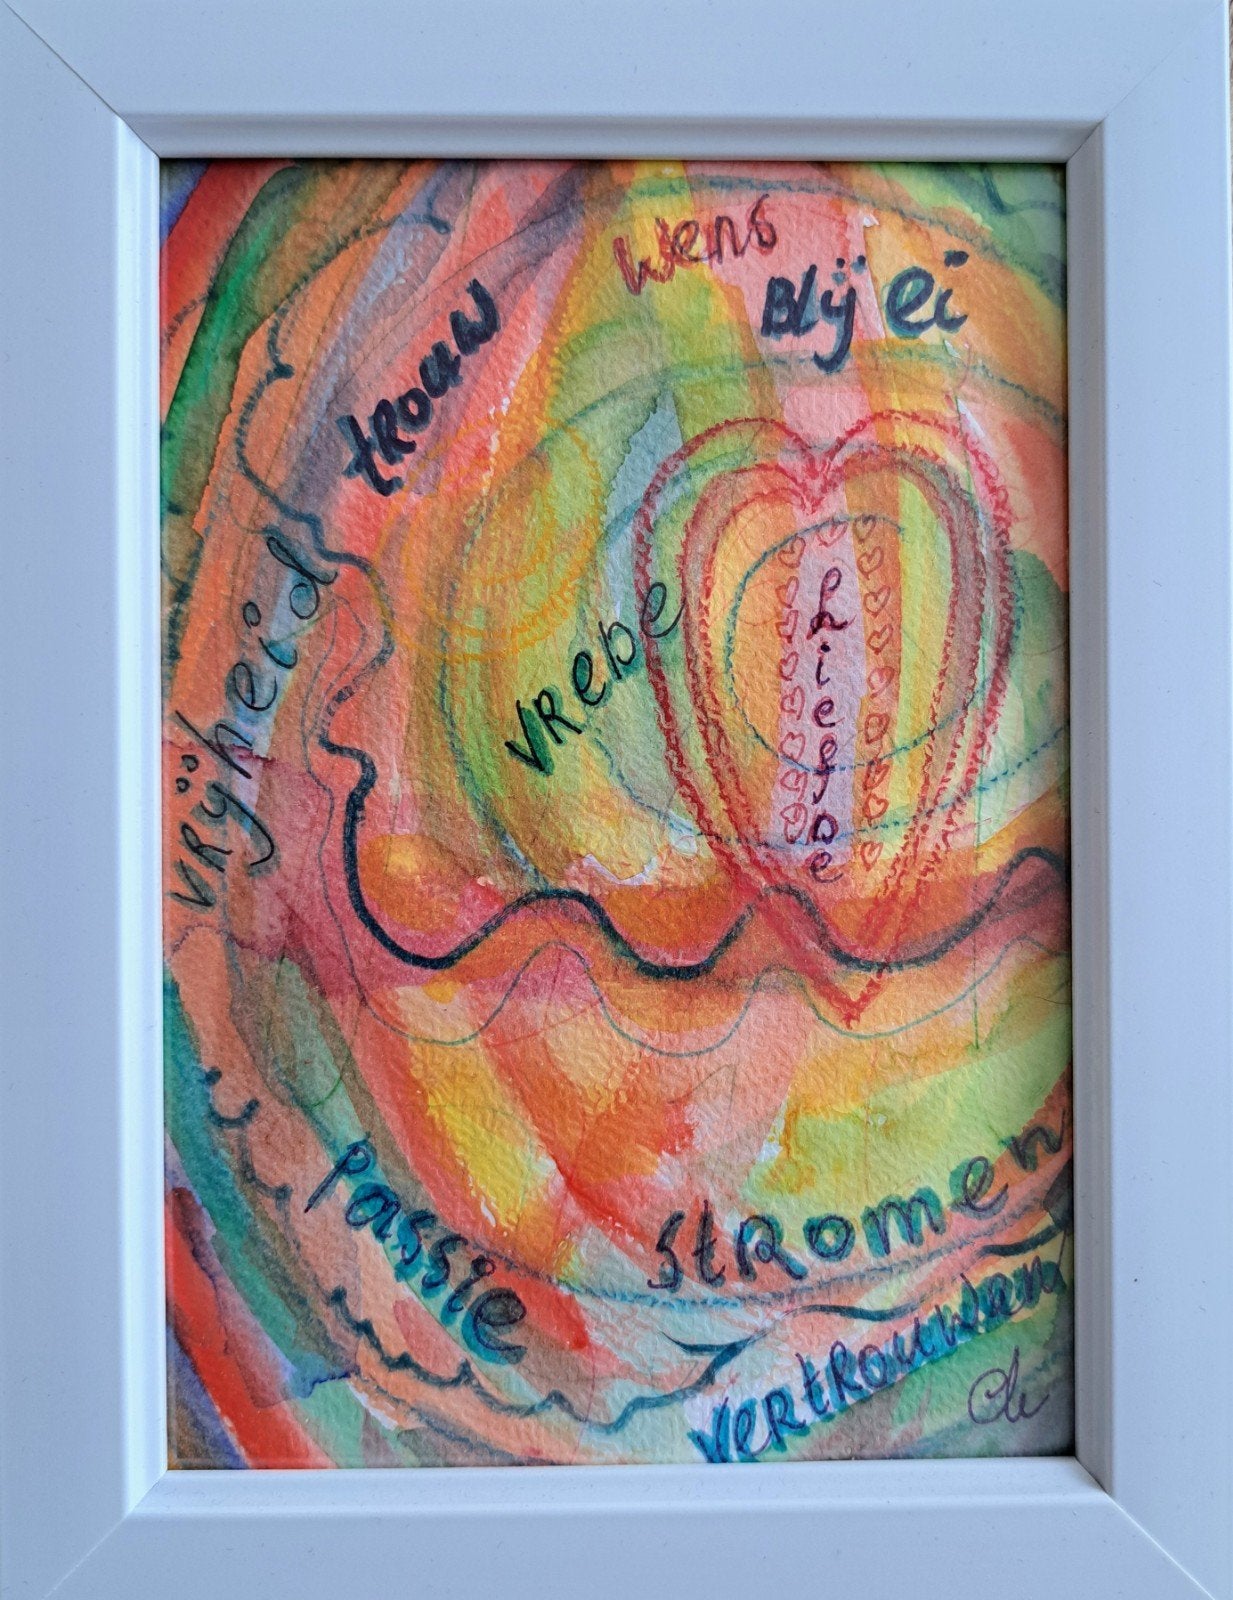 wens
BLÿ ei
tRouw
VRÿheid
VReDe
liefDe
passie
stRomen
VeRtRouwen